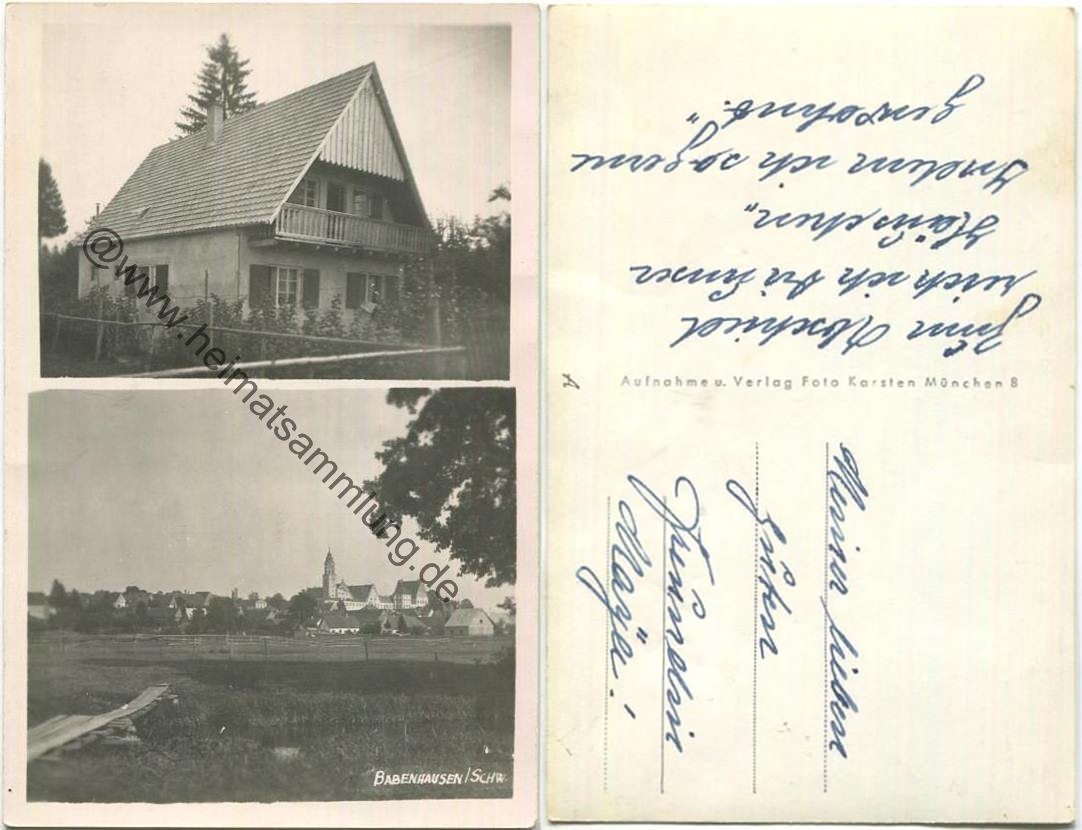 @www.heimatsammlung.de.
BABENHAUSEN/SCHW.
Zum Abschied
weih ich dir unser
Häuschen,
Indem ich so gerne
gewohnt."
Aufnahme u. Verlag Foto Karsten München 8
A
Meiner lieben
guten
Freundin
Maja!